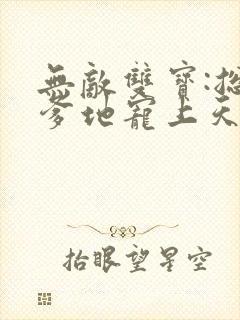 無敵雙寶:總
爹地寵上天
抬眼望星空